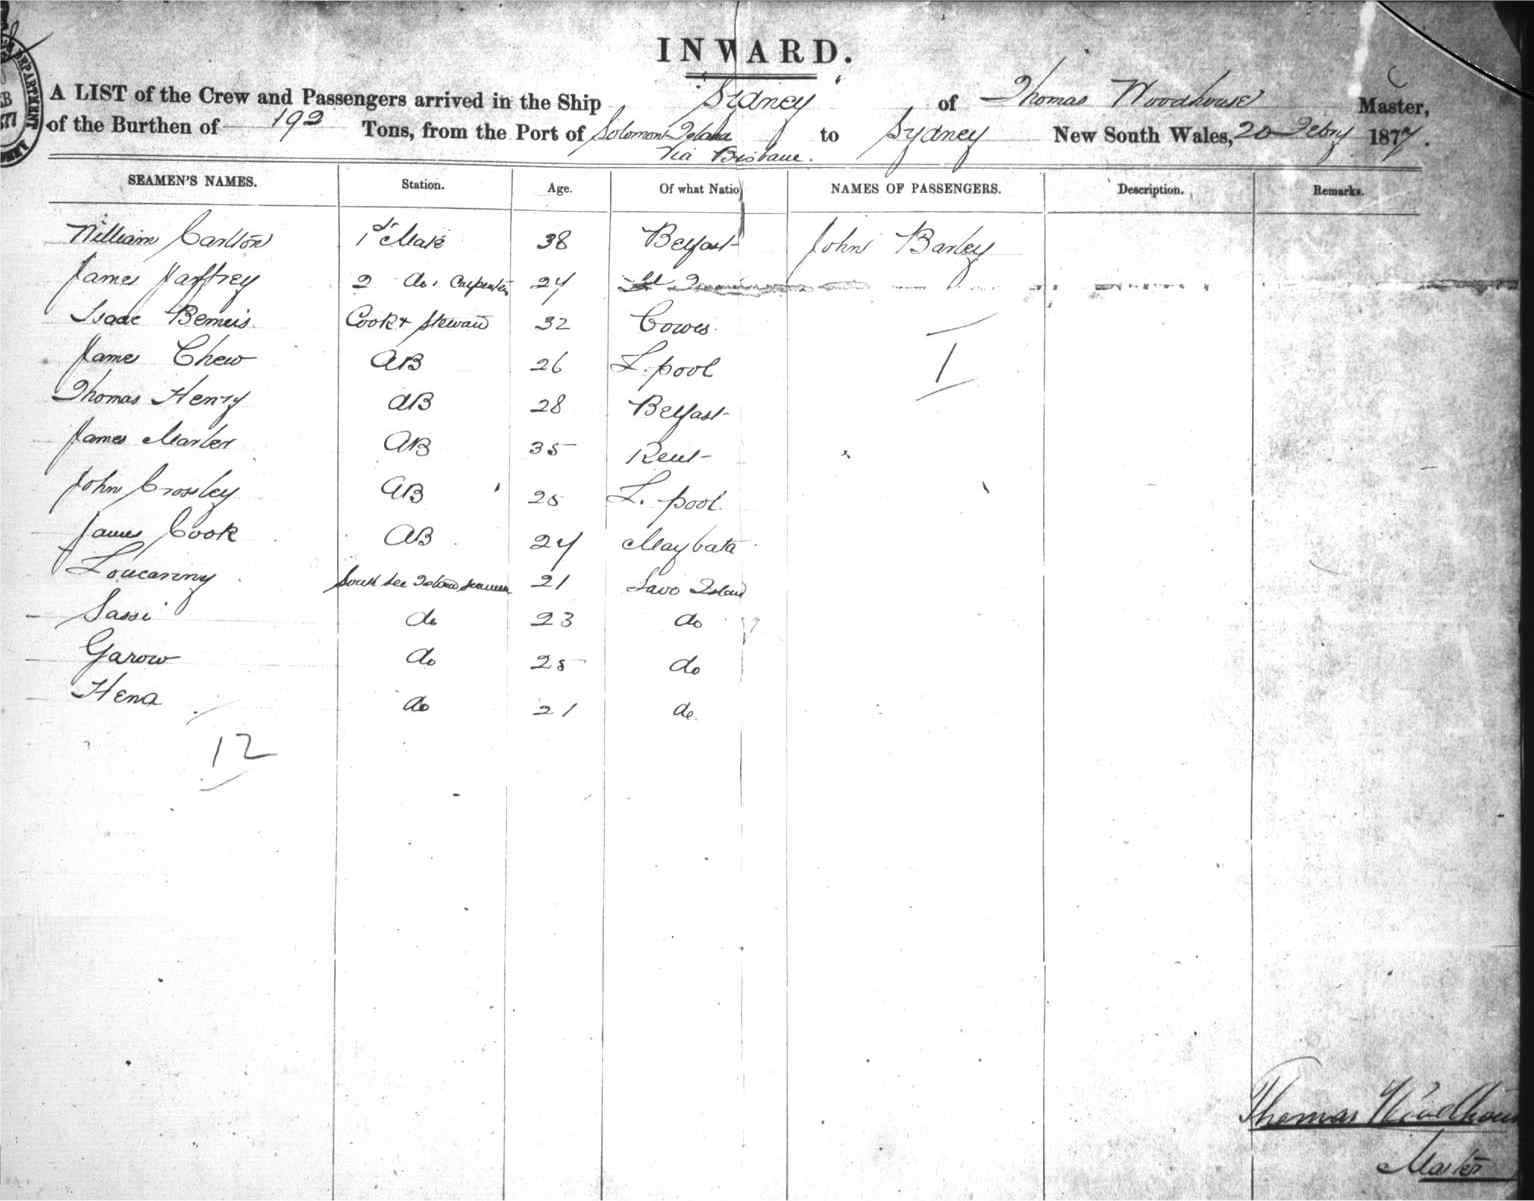 INWARD.
A LIST of the Crew and Passengers arrived in the Ship "Sydney" of Thomas Woodhouse Master,
of the Burthen of 192 Tons, from the Port of Solomon Island to Sydney New South Wales, 20 Febry 1877.
Via Brisbane.
SEAMEN'S NAMES. Station. Age. Of what Natio NAMES OF PASSENGERS. Description. Remarks.
William Carlton 1st Mate 38 Belfast John Barley
James Jaffrey 2 do. Carpenter 24
Isaac Bemis Cook & Steward 32 Cowes
James Chew AB 26 L.pool 1
Thomas Henry AB 28 Belfast
James Marler AB 35 Kent
John Crossley AB 25 L.pool
James Cook AB 24
South Sea Island seaman 21 Savo Island
Sassi do 23 do
Garow do 25 do
Hena do 21 do
12
Thomas Woodhouse
Master